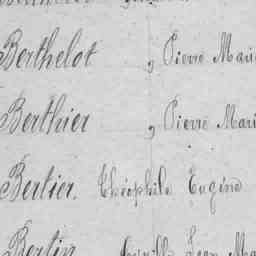 Berthelot , Pierre Marie
Berthier , Pierre Mari
Bertier. Théophile Eugène
Bertin